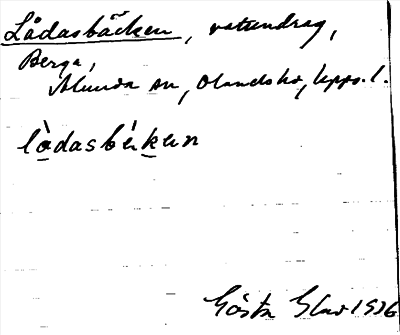 Lådasbäcken, vattendrag,
Berga,
Alunda sn, Olandshd, Upps. l.
lådasbéken
Gösta 1936